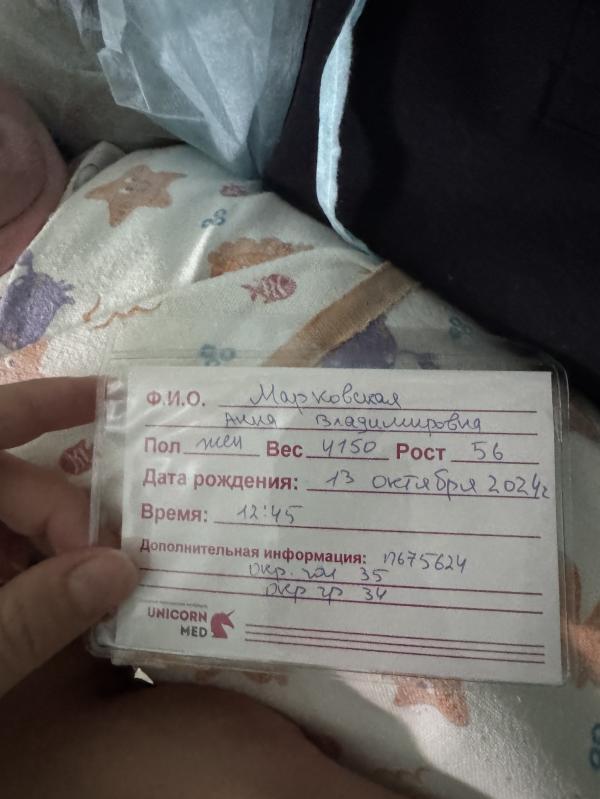 Ф.И.О. Марковская
Анна Владимировна
Пол жен Вес 4150 Рост 56
Дата рождения: 13 октября 2024г
Время: 12:45
Дополнительная информация: п675624
окр. гол 35
окр гр 34
UNICORN
MED